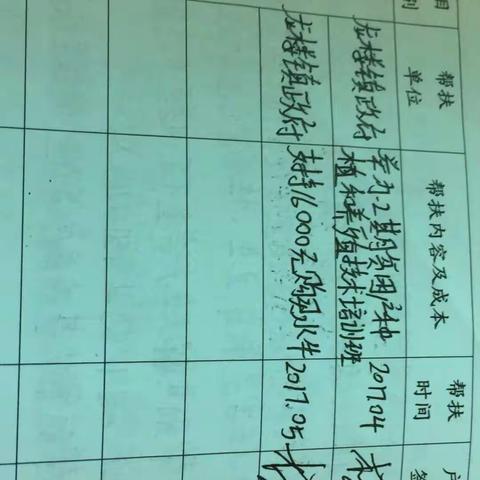 目
别
帮扶
单位
帮扶内容及成本
帮扶
时间
户
签
龙楼镇政府
举办2期贫困户种
植和养殖技术培训班
2017.04
龙楼镇政府
支持16000元购买水牛
2017.05